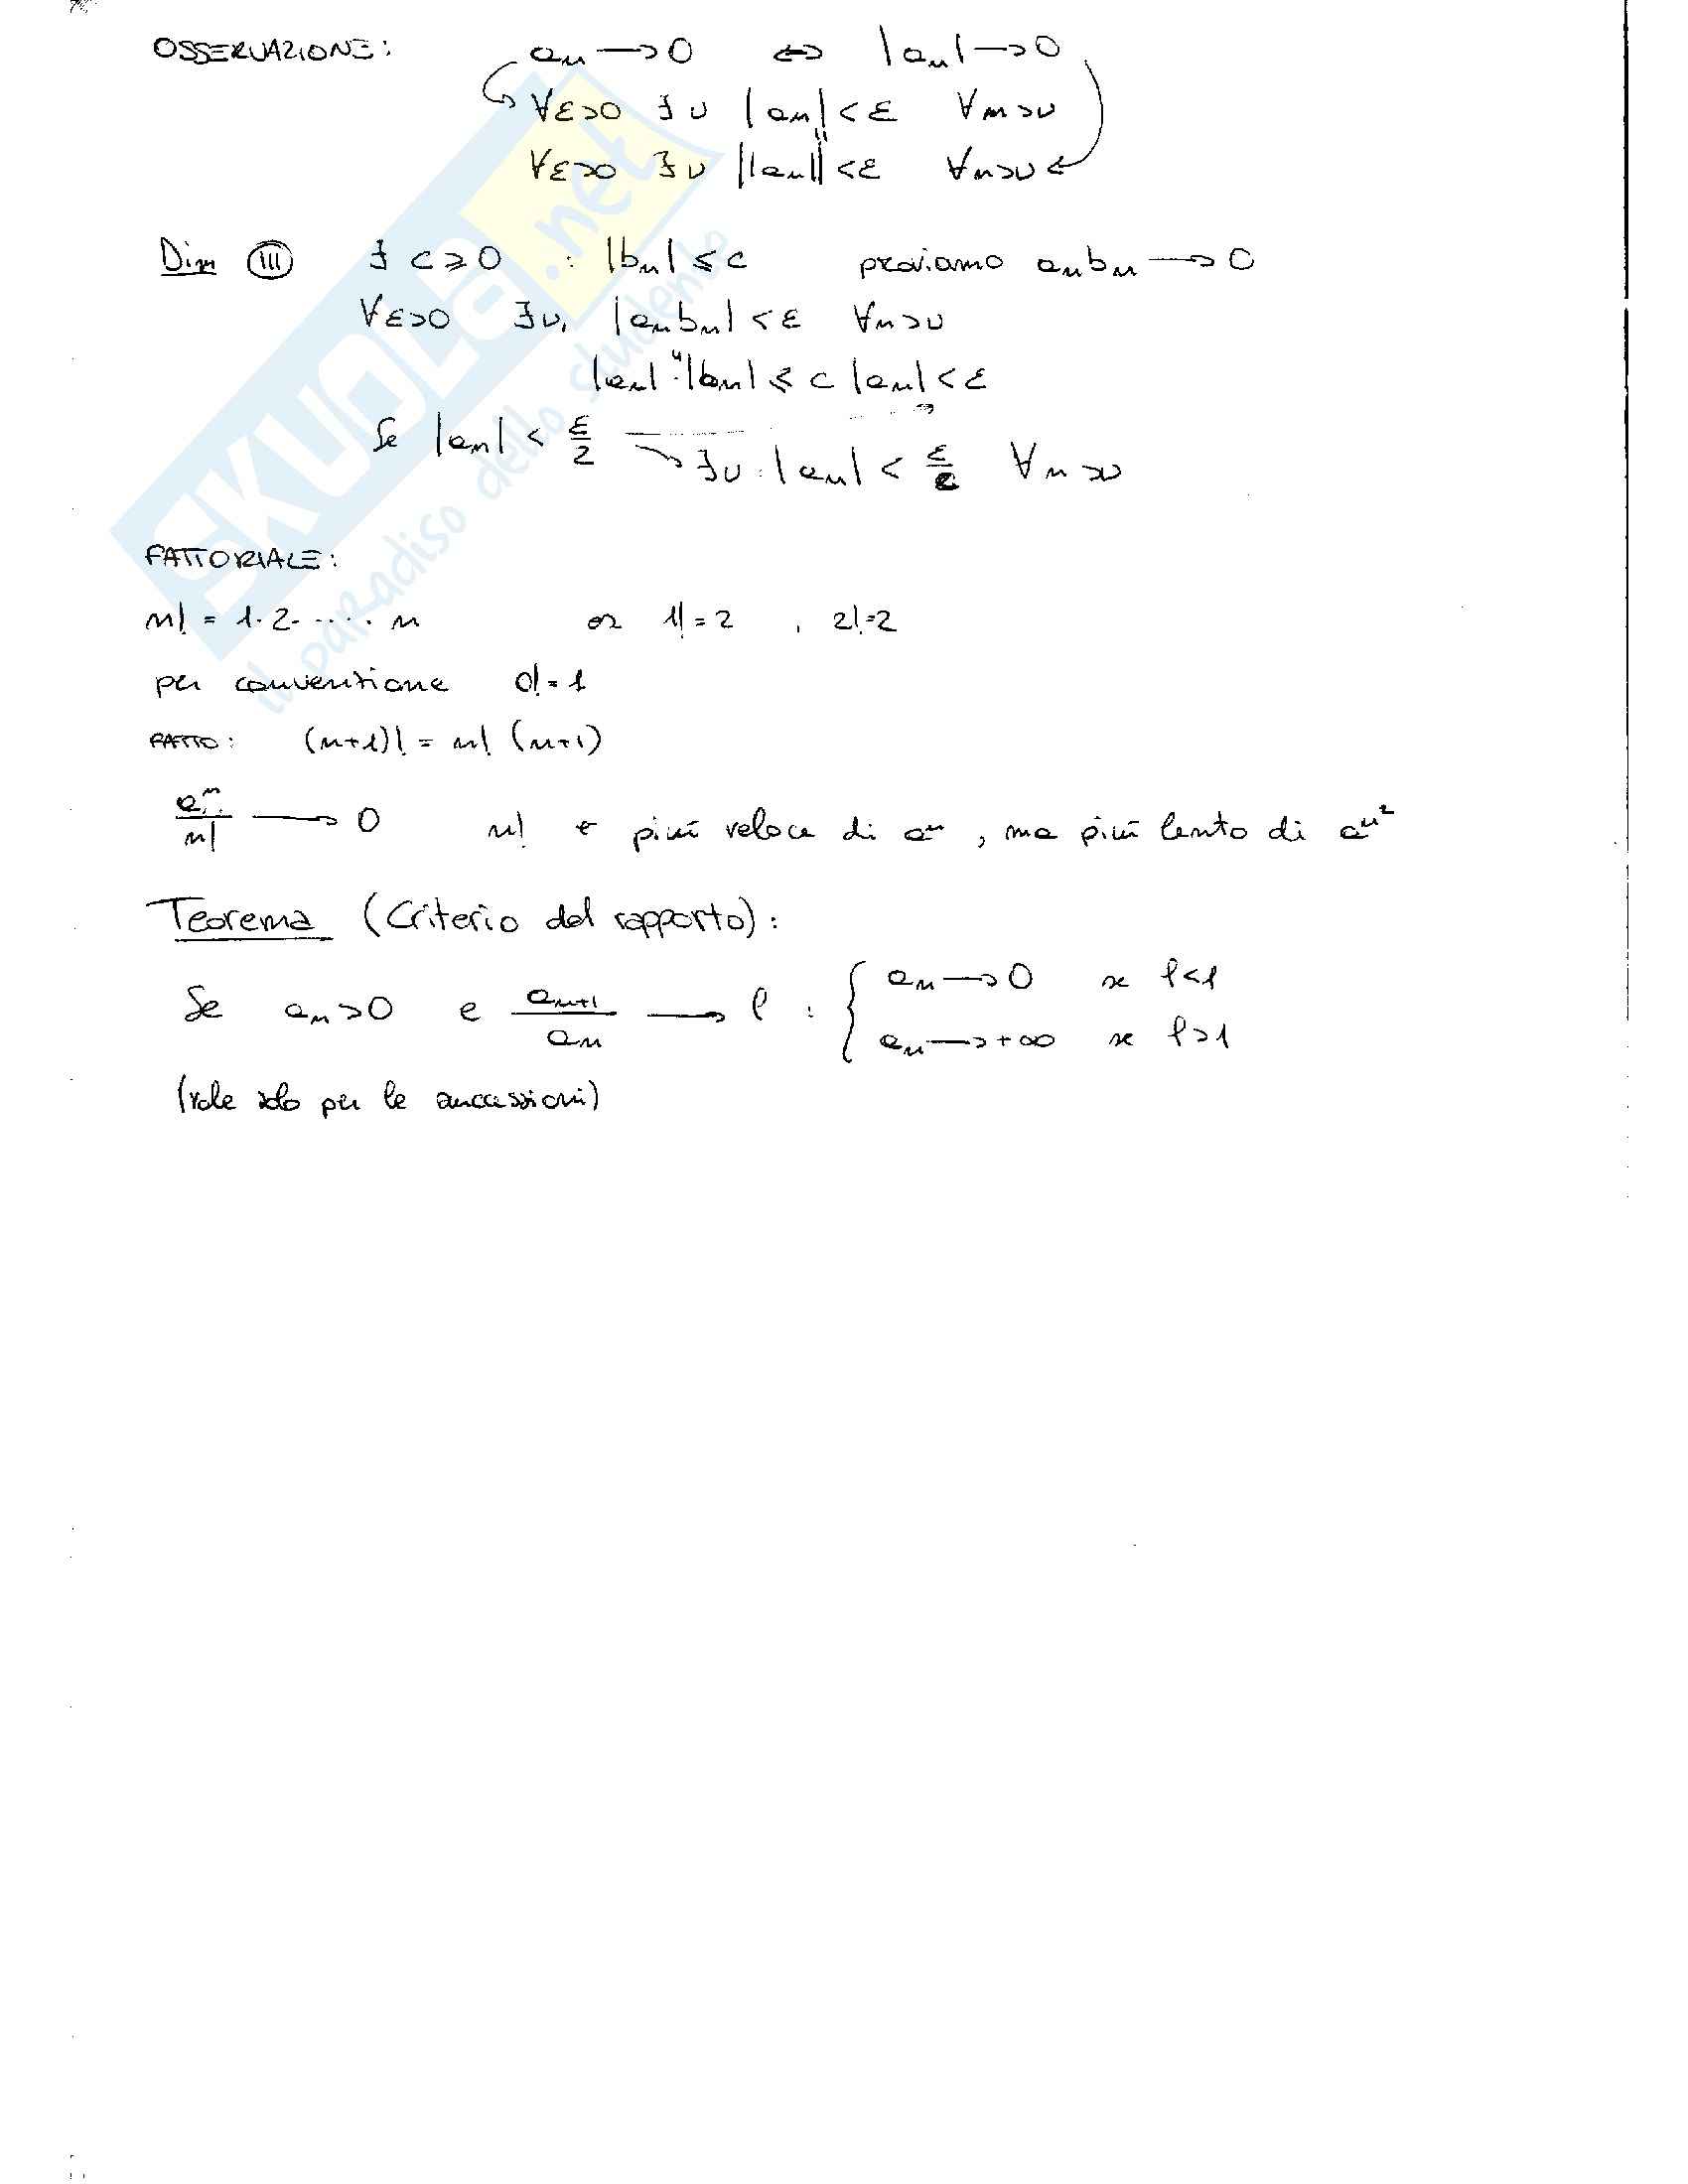 OSSERVAZIONE: an → 0 ⇔ |an| → 0
∀ε>0 ∃ν |an| < ε ∀n>ν
∀ε>0 ∃ν ||an|| < ε ∀n>ν
Dim III ∃ c ⩾ 0 : |bn| ⩽ c proviamo anbn → 0
∀ε>0 ∃ν, |anbn| < ε ∀n>ν
|an|·|bn| ⩽ c|an| < ε
Se |an| < ε/2 → ∃ν: |an| < ε/c ∀n>ν
FATTORIALE:
n! = 1·2·····n es 1!=2, 2!=2
per convenzione 0!=1
FATTO: (n+1)! = n! (n+1)
aⁿ/n! → 0 n! è più veloce di aⁿ, ma più lento di aⁿ²
Teorema (Criterio del rapporto):
Se an>0 e an+1/an → l : { an → 0 se l<1
an → +∞ se l>1
(vale solo per le successioni)
SKUOLA.net
il paradiso dello studente